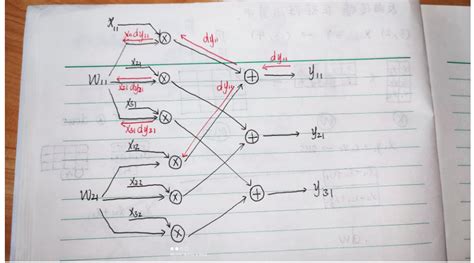 x₁₁
x₁₁dy₁₁
dy₁₁
dy₁₁
W₁₁
x₂₁
x₂₁dy₂₁
dy₁₁
y₁₁
x₃₁
x₃₁dy₃₁
x₁₂
y₂₁
W₂₁
x₂₂
y₃₁
x₃₂